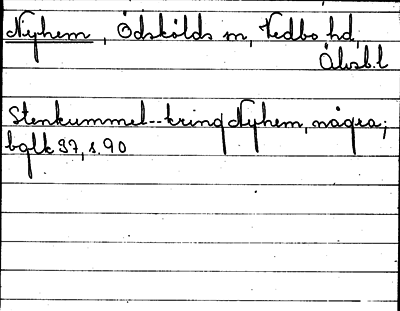 Nyhem, Ödskölds sn, Vedbo hd,
Älvsb.l
Stenkummel--kring Nyhem, några;
bglk 37, s. 90